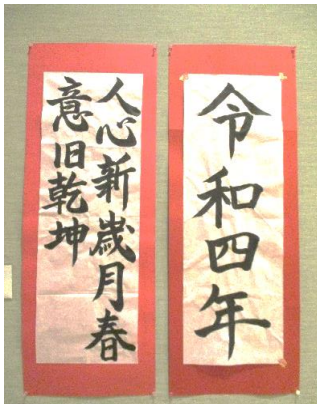 令和四年
人心新歳月春
意旧乾坤